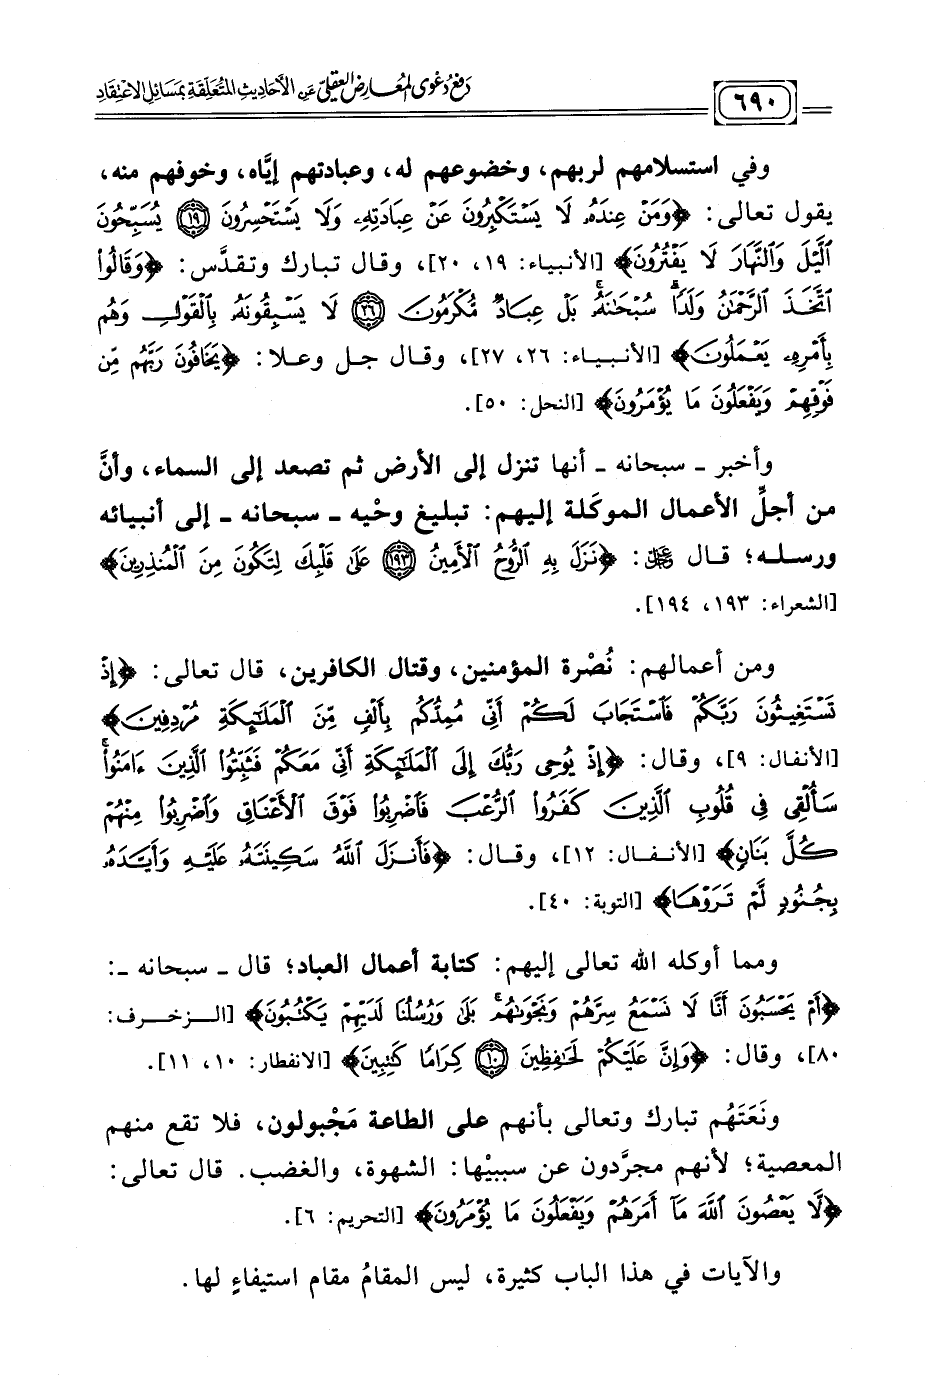 ٦٩٠
دفع دعوى المعارض العقلي عن الأحاديث المتعلقة بمسائل الاعتقاد
وفي استسلامهم لربهم، وخضوعهم له، وعبادتهم إيَّاه، وخوفهم منه،
يقول تعالى: ﴿وَمَنْ عِندَهُۥ لَا يَسْتَكْبِرُونَ عَنْ عِبَادَتِهِۦ وَلَا يَسْتَحْسِرُونَ ۝١٩ يُسَبِّحُونَ
ٱلَّيْلَ وَٱلنَّهَارَ لَا يَفْتُرُونَ﴾ [الأنبياء: ١٩، ٢٠]، وقال تبارك وتقدَّس: ﴿وَقَالُواْ
ٱتَّخَذَ ٱلرَّحْمَٰنُ وَلَدٗاۗ سُبْحَٰنَهُۥۚ بَلْ عِبَادٞ مُّكْرَمُونَ ۝٢٦ لَا يَسْبِقُونَهُۥ بِٱلْقَوْلِ وَهُم
بِأَمْرِهِۦ يَعْمَلُونَ﴾ [الأنبياء: ٢٦، ٢٧]، وقال جل وعلا: ﴿يَخَافُونَ رَبَّهُم مِّن
فَوْقِهِمْ وَيَفْعَلُونَ مَا يُؤْمَرُونَ﴾ [النحل: ٥٠].
وأخبر ـ سبحانه ـ أنها تنزل إلى الأرض ثم تصعد إلى السماء، وأنَّ
من أجلِّ الأعمال الموكَلة إليهم: تبليغ وحْيه ـ سبحانه ـ إلى أنبيائه
ورسله؛ قال ﷻ: ﴿نَزَلَ بِهِ ٱلرُّوحُ ٱلْأَمِينُ ۝١٩٣ عَلَىٰ قَلْبِكَ لِتَكُونَ مِنَ ٱلْمُنذِرِينَ﴾
[الشعراء: ١٩٣، ١٩٤].
ومن أعمالهم: نُصْرة المؤمنين، وقتال الكافرين، قال تعالى: ﴿إِذْ
تَسْتَغِيثُونَ رَبَّكُمْ فَٱسْتَجَابَ لَكُمْ أَنِّي مُمِدُّكُم بِأَلْفٖ مِّنَ ٱلْمَلَٰٓئِكَةِ مُرْدِفِينَ﴾
[الأنفال: ٩]، وقال: ﴿إِذْ يُوحِي رَبُّكَ إِلَى ٱلْمَلَٰٓئِكَةِ أَنِّي مَعَكُمْ فَثَبِّتُواْ ٱلَّذِينَ ءَامَنُواْۚ
سَأُلْقِي فِي قُلُوبِ ٱلَّذِينَ كَفَرُواْ ٱلرُّعْبَ فَٱضْرِبُواْ فَوْقَ ٱلْأَعْنَاقِ وَٱضْرِبُواْ مِنْهُمْ
كُلَّ بَنَانٖ﴾ [الأنفال: ١٢]، وقال: ﴿فَأَنزَلَ ٱللَّهُ سَكِينَتَهُۥ عَلَيْهِ وَأَيَّدَهُۥ
بِجُنُودٖ لَّمْ تَرَوْهَا﴾ [التوبة: ٤٠].
ومما أوكله الله تعالى إليهم: كتابة أعمال العباد؛ قال ـ سبحانه ـ:
﴿أَمْ يَحْسَبُونَ أَنَّا لَا نَسْمَعُ سِرَّهُمْ وَنَجْوَىٰهُمۚ بَلَىٰ وَرُسُلُنَا لَدَيْهِمْ يَكْتُبُونَ﴾ [الزخرف:
٨٠]، وقال: ﴿وَإِنَّ عَلَيْكُمْ لَحَٰفِظِينَ ۝١٠ كِرَامٗا كَٰتِبِينَ﴾ [الانفطار: ١٠، ١١].
ونَعَتَهُم تبارك وتعالى بأنهم على الطاعة مَجْبولون، فلا تقع منهم
المعصية؛ لأنهم مجرَّدون عن سببيْها: الشهوة، والغضب. قال تعالى:
﴿لَّا يَعْصُونَ ٱللَّهَ مَآ أَمَرَهُمْ وَيَفْعَلُونَ مَا يُؤْمَرُونَ﴾ [التحريم: ٦].
والآيات في هذا الباب كثيرة، ليس المقامُ مقام استيفاءٍ لها.